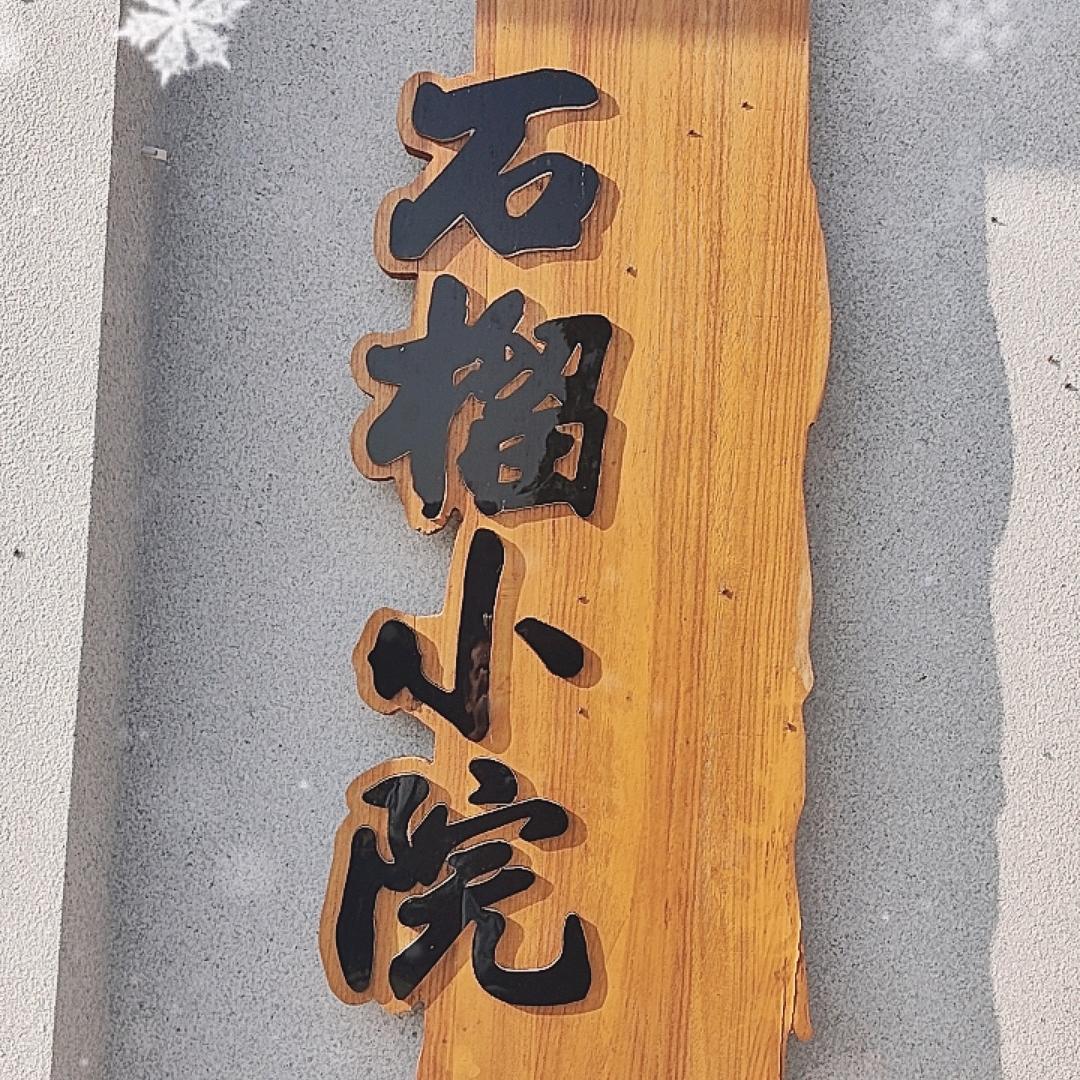 石榴小院